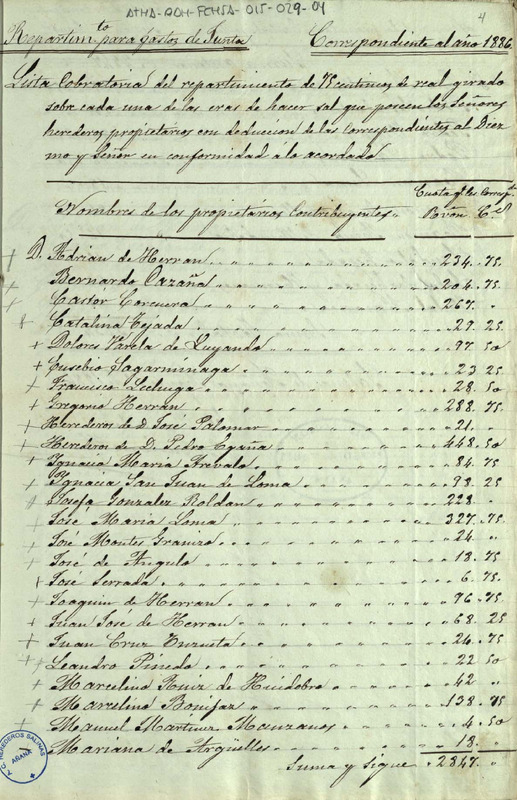 ATHA-DOM-FCHSA-015-029-04
4
Repartim.to para gastos de Junta Correspondiente al año 1886
Lista Cobratoria del repartimiento de 75 centimos de real girado
sobre cada una de las eras de hacer sal que poseen los Señores
herederos propietarios con deduccion de las Correspondientes al Diez
mo y Señor en conformidad á lo acordado
Nombres de los propietarios Contribuyentes
Cuota q.e les Corresp.e
R.s von C.s
D. Adrian de Herran 234 . 75
Bernardo Cazaña 204 . 75
Castor Corcuera 267 . "
Catalina Tejada 29 . 25
Dolores Varela de Luyando 97 . 50
Eusebio Sagarminaga 23 25
Francisco Lechuga 28 . 50
Gregorio Herran 288 . 75
Herederos de D. José Palomar 21 . "
Herederos de D. Pedro Egaña 448 . 50
Ignacio Maria Arevalo 84 . 75
Ygnacia San Juan de Loma 98 . 25
Josefa Gonzalez Roldan 228 . "
José Maria Loma 327 . 75
José Montes Granizo 24 . "
José de Angulo 18 . 75
José Serrada 6 . 75
Joaquin de Herran 76 . 75
Juan José de Herran 68 . 25
Juan Cruz 24 . 75
Leandro Pineda 22 50
Marcelino Ruiz de Huidobro 42 "
Marcelino Bonifaz 138 . 75
Manuel Martinez Manzanos 4 . 50
Mariana de Arguelles 18 . "
Suma y sigue 2847 . "
A.C. HEREDEROS SALINAS
AÑANA